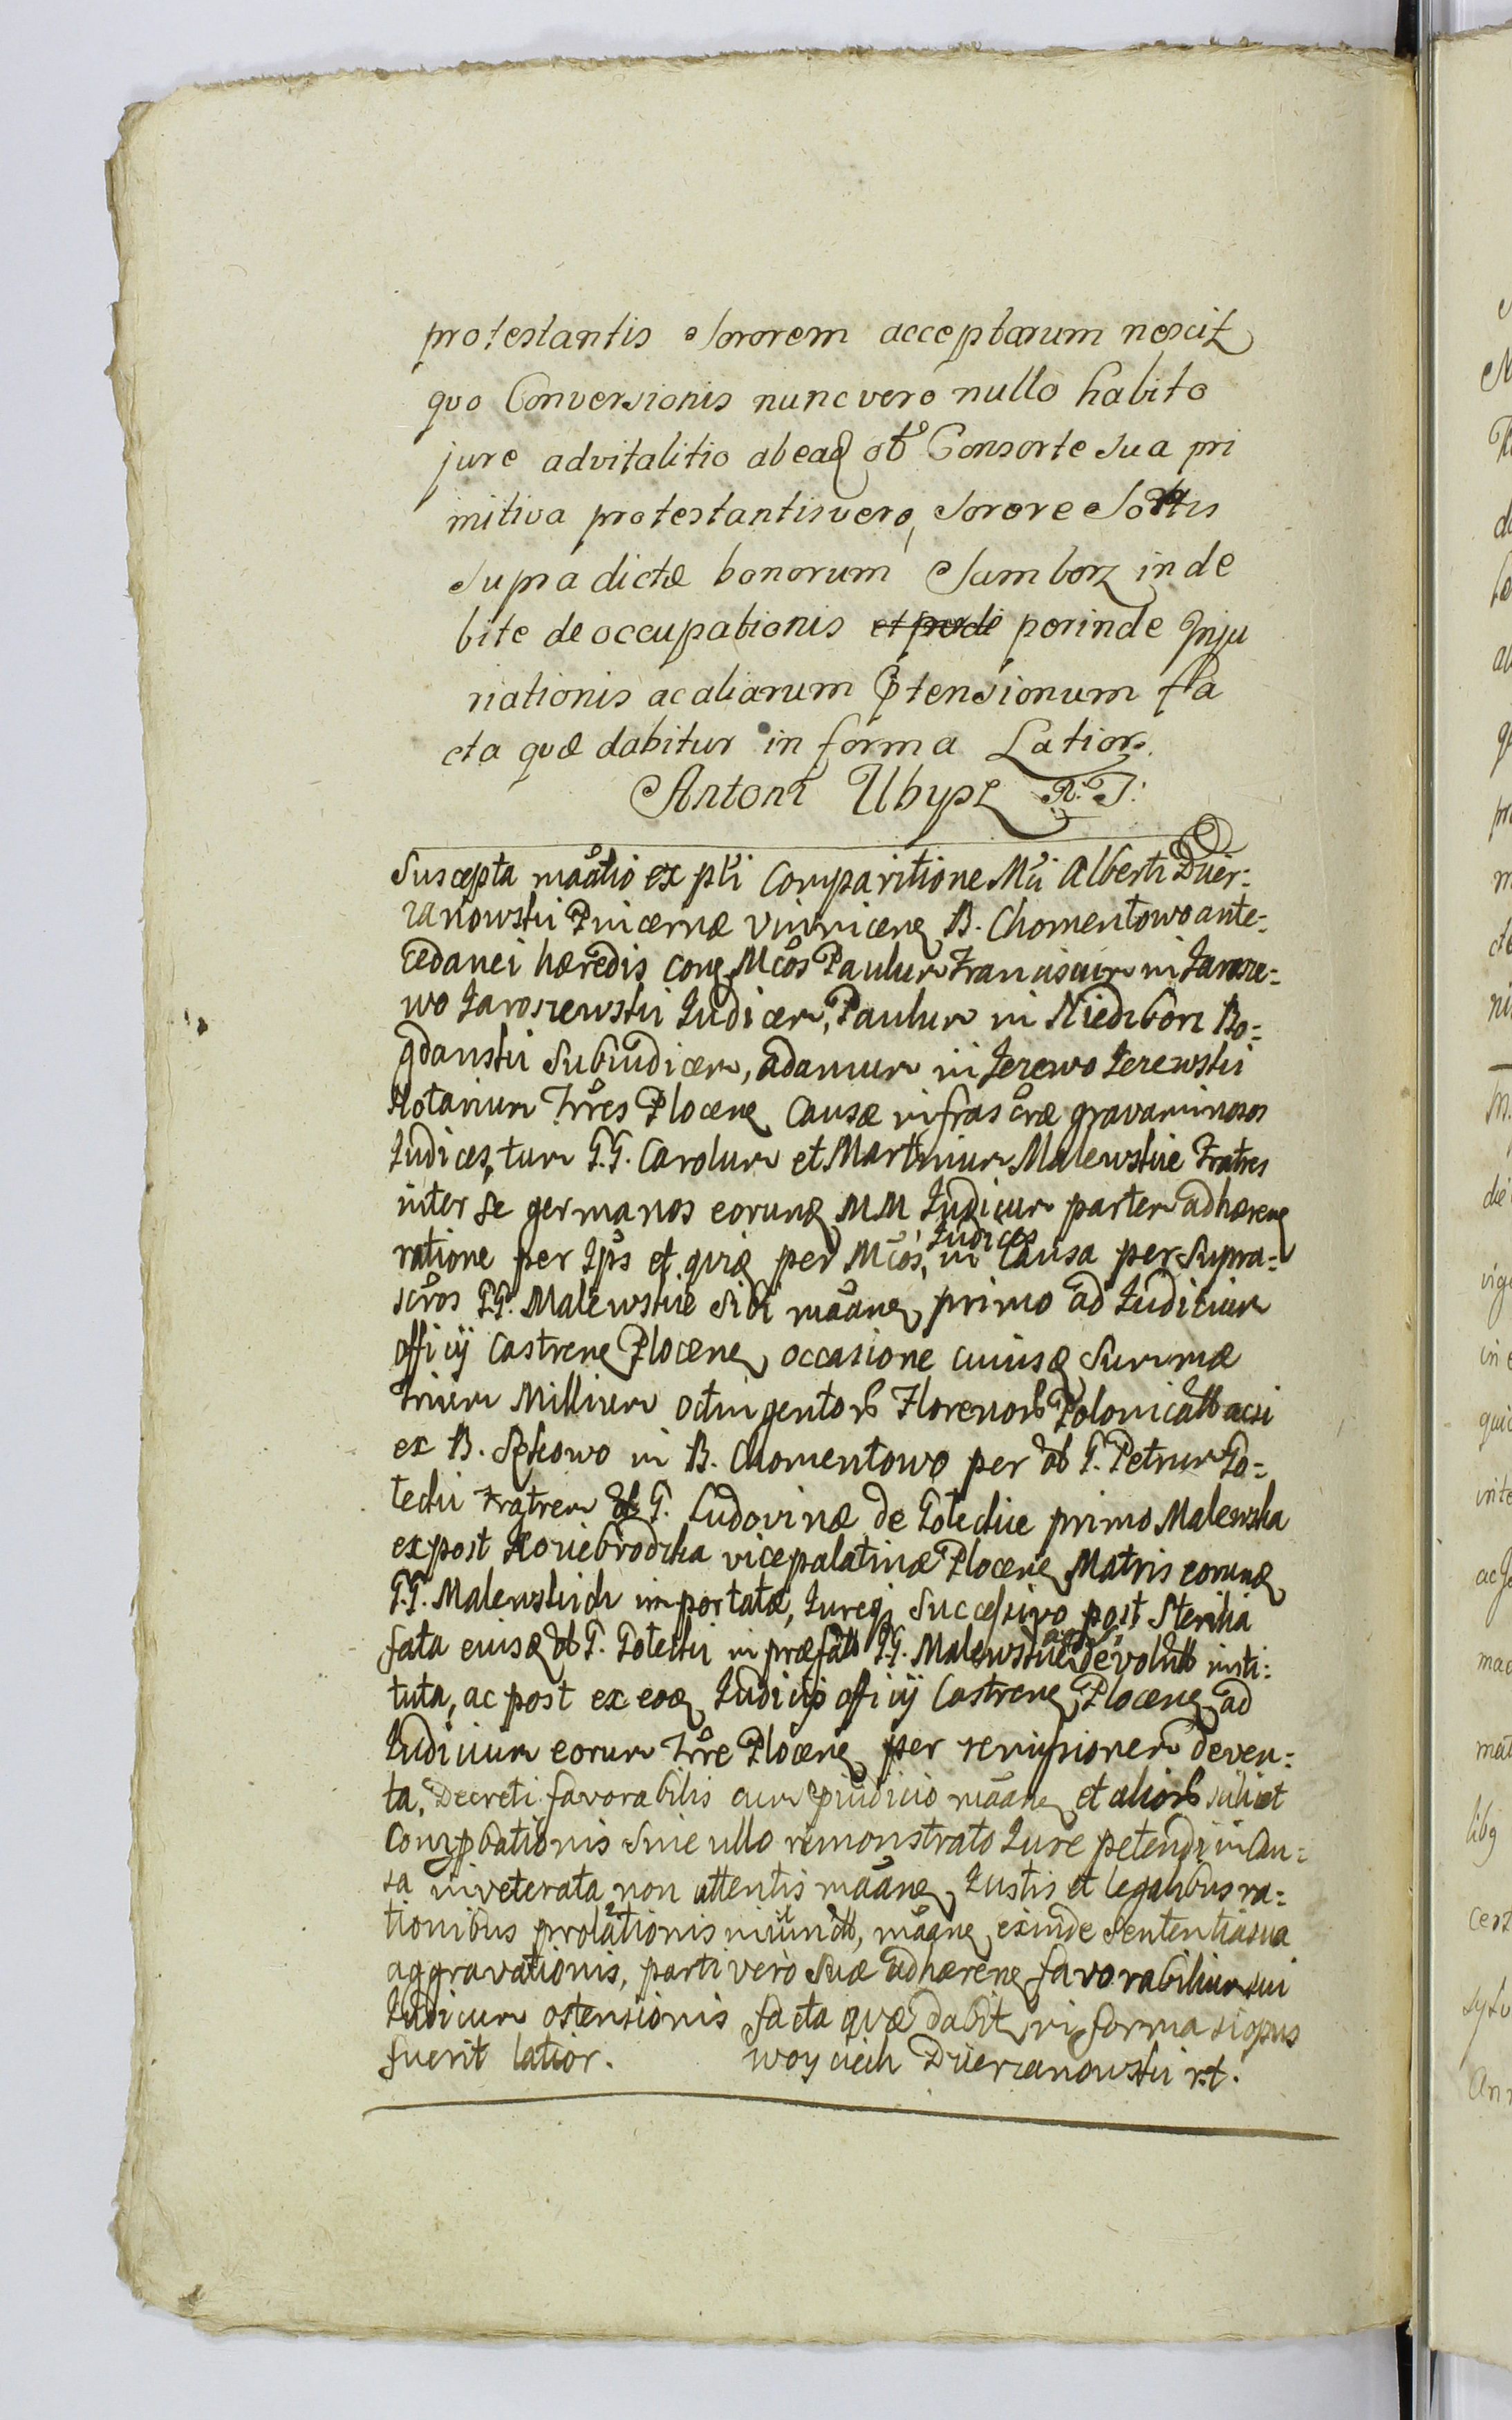 protestantis Sororem acceptarum nescitz
quo Conversionis nunc vero nullo habito
jure advitalitio ab eaq₃ oł Consorte sua pri
mitiva protestantis vero, Sorore Sortis
supra dictæ bonorum Samborz inde
bite deoccupationis et perde perinde Inju
riationis ac aliarum Ptensionum fa
cta quæ dabitur in forma Latiori
Antoni Ubysz R. T.
Suscepta mãatio ex płi Comparitione Mci Alberti Dzier=
zanowski Pincernæ Vinnicen B. Chomentowo ante=
cedanei hæredis con Mcos Paulum Franciscum in Jarosze=
wo Jaroszewski Judicem, Paulum in Niedzborz Bo=
gdanski Subiudicem, adamum in Jezewo Jezewski
Notarium Trres Plocen Causæ infrascræ gravaminosos
Judices, tum G.G. Carolum et Martinum Malewskie Fratres
inter se germanos eorunq MM Judicum partem adhæren
ratione per Ips et quiq per Mcos, Judices in Causa per Supra=
scros GG. Malewskie sibi mãan primo ad Judicium
officij Castren Plocen occasione cuiusq Summæ
trium Millium octingentorb Florenorb Polonicalb acsi
ex B. in B. Chomentowo per ol G. Petrum Go=
lecki Fratrem ol G. Ludovinæ de Goleckie primo Malewska
expost Koziebrodzka vicepalatinæ Plocen Matris eorunq
G.G. Malewskich importatæ, Jureq Successivo post Sterilia
fata eiusq ol G. Golecki in præfatb GG. Malewskie devolutb insti=
tuta, ac post ex eoq Judicio officij Castren Plocen ad
Judicium eorum Trre Plocen per remisionem deven=
ta, Decreti favorabilis cum pjudicio mãan et aliorb scilicet
Comprbationis sine ullo remonstrato Jure petendi in Cau=
sa inveterata non attentis mãan Justis et legalibus ra=
tionibus prolationis mãan exinde Sententia sua
aggravationis, parti vero suæ adhæren favorabilium sui
Judicum ostensionis facta quæ dabit in forma si opus
fuerit latior. Woyciech Dzierzanowski r.t.